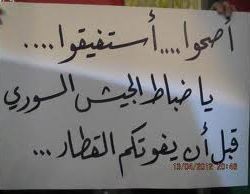 أصحوا.... أستفيقوا....
يا ضباط الجيش السوري
قبل أن يفوتكم القطار...
13/04/2012 20:48